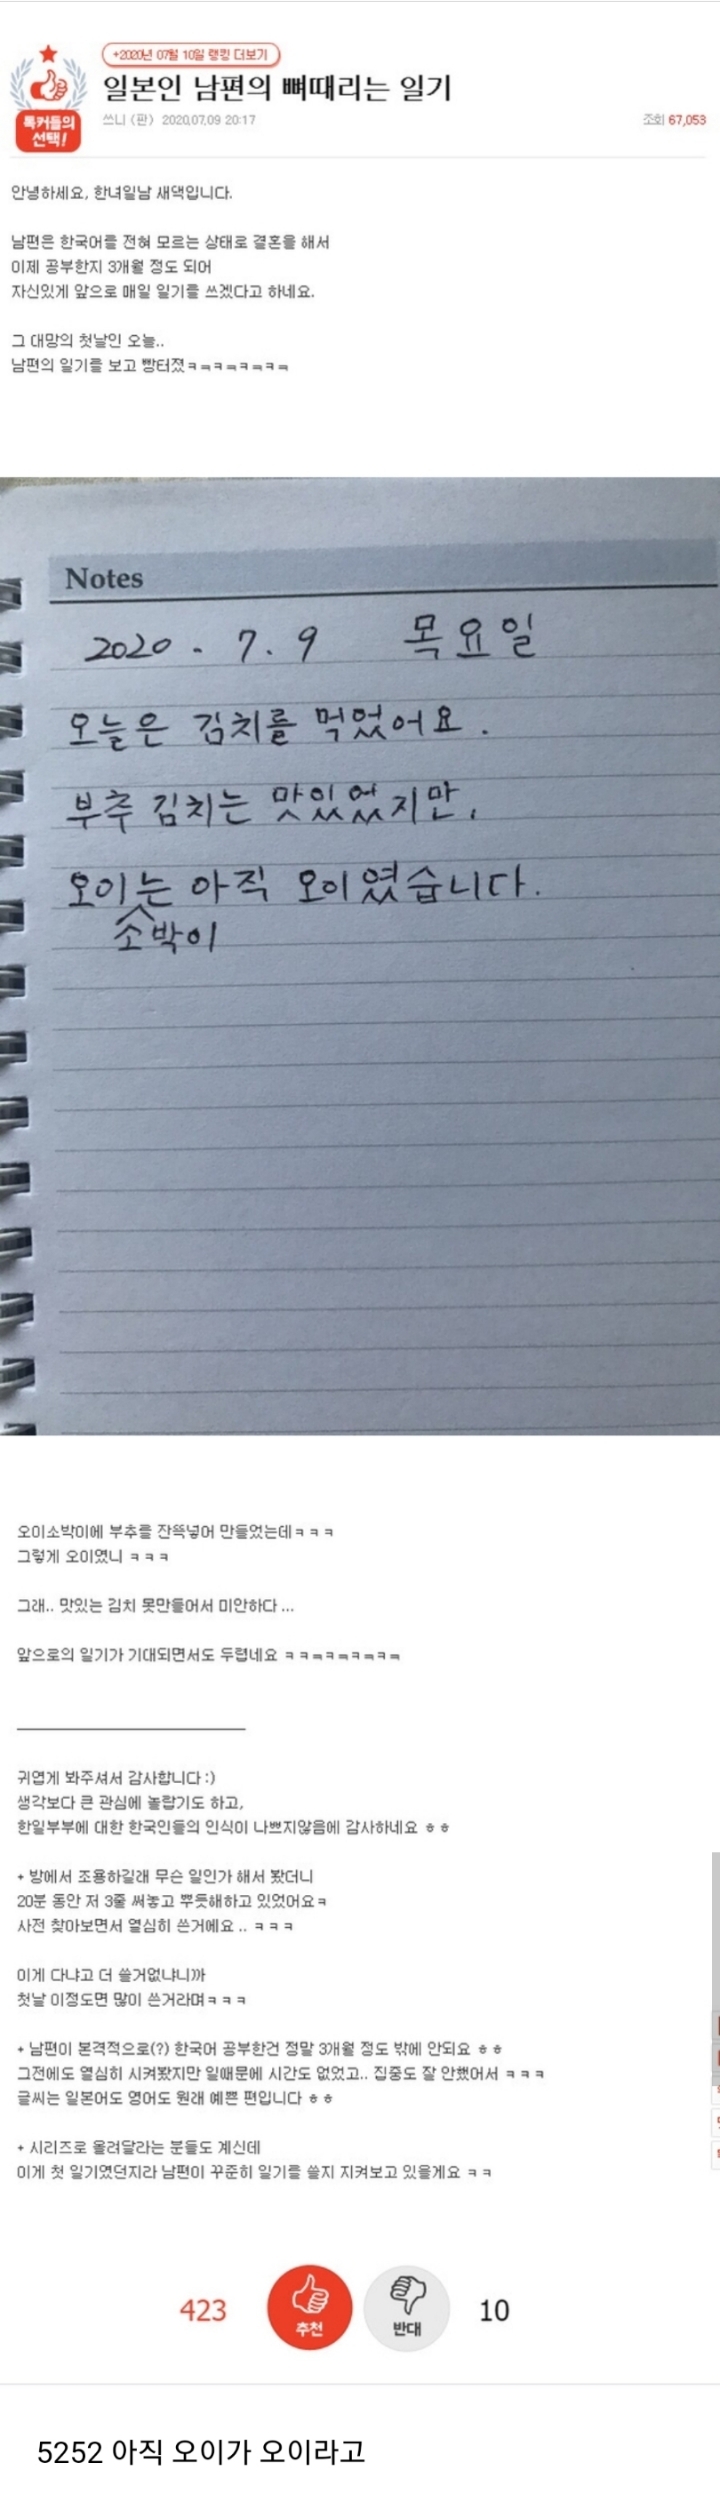 +2020년 07월 10일 랭킹 더보기
톡커들의
선택!
일본인 남편의 뼈때리는 일기
쓰니 (판) 2020.07.09 20:17
조회 67,053
안녕하세요, 한녀일남 새댁입니다.
남편은 한국어를 전혀 모르는 상태로 결혼을 해서
이제 공부한지 3개월 정도 되어
자신있게 앞으로 매일 일기를 쓰겠다고 하네요.
그 대망의 첫날인 오늘..
남편의 일기를 보고 빵터졌ㅋㅋㅋㅋㅋㅋㅋㅋ
Notes
2020 . 7. 9 목요일
오늘은 김치를 먹었어요.
부추 김치는 맛있었지만,
오이는 아직 오이였습니다.
소박이
오이소박이에 부추를 잔뜩넣어 만들었는데ㅋㅋㅋ
그렇게 오이였니 ㅋㅋㅋ
그래.. 맛있는 김치 못만들어서 미안하다 ...
앞으로의 일기가 기대되면서도 두렵네요 ㅋㅋㅋㅋㅋㅋㅋㅋㅋ
귀엽게 봐주셔서 감사합니다 :)
생각보다 큰 관심에 놀랍기도 하고,
한일부부에 대한 한국인들의 인식이 나쁘지않음에 감사하네요 ㅎㅎ
+ 방에서 조용하길래 무슨 일인가 해서 봤더니
20분 동안 저 3줄 써놓고 뿌듯해하고 있었어요ㅋ
사전 찾아보면서 열심히 쓴거에요 .. ㅋㅋㅋ
이게 다냐고 더 쓸거없냐니까
첫날 이정도면 많이 쓴거라며ㅋㅋㅋ
+ 남편이 본격적으로(?) 한국어 공부한건 정말 3개월 정도 밖에 안되요 ㅎㅎ
그전에도 열심히 시켜봤지만 일때문에 시간도 없었고.. 집중도 잘 안했어서 ㅋㅋㅋ
글씨는 일본어도 영어도 원래 예쁜 편입니다 ㅎㅎ
+ 시리즈로 올려달라는 분들도 계신데
이게 첫 일기였던지라 남편이 꾸준히 일기를 쓸지 지켜보고 있을게요 ㅋㅋ
423 추천 반대 10
5252 아직 오이가 오이라고